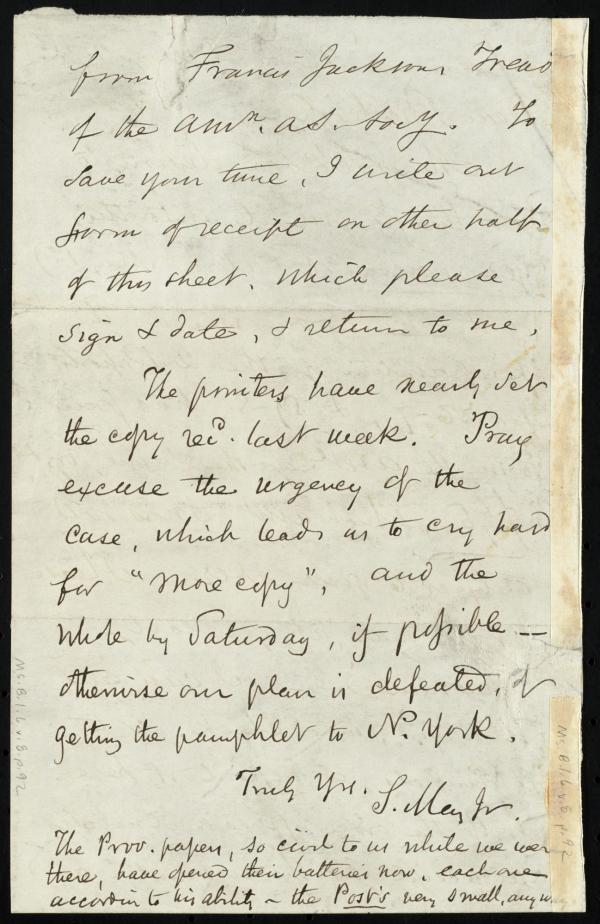 from Francis Jackson, Treas
of the Amn. A.S. Socy. To
save your time, I write out
form of receipt on other half
of this sheet, which please
sign & date, & return to me.
The printers have nearly set
the copy recd. last week. Pray
excuse the urgency of the
case, which leads us to cry hard
for "more copy", and the
whole by Saturday, if possible —
otherwise our plan is defeated, of
getting the pamphlet to N. York.
Truly Yrs.
S. May Jr.
The Prov. papers, so civil to us while we were
there, have opened their batteries now, each one
according to his ability – the Post's very small, any way
Ms.B.1.6.v.8.p.92
Ms.B.1.6.v.8.p.92